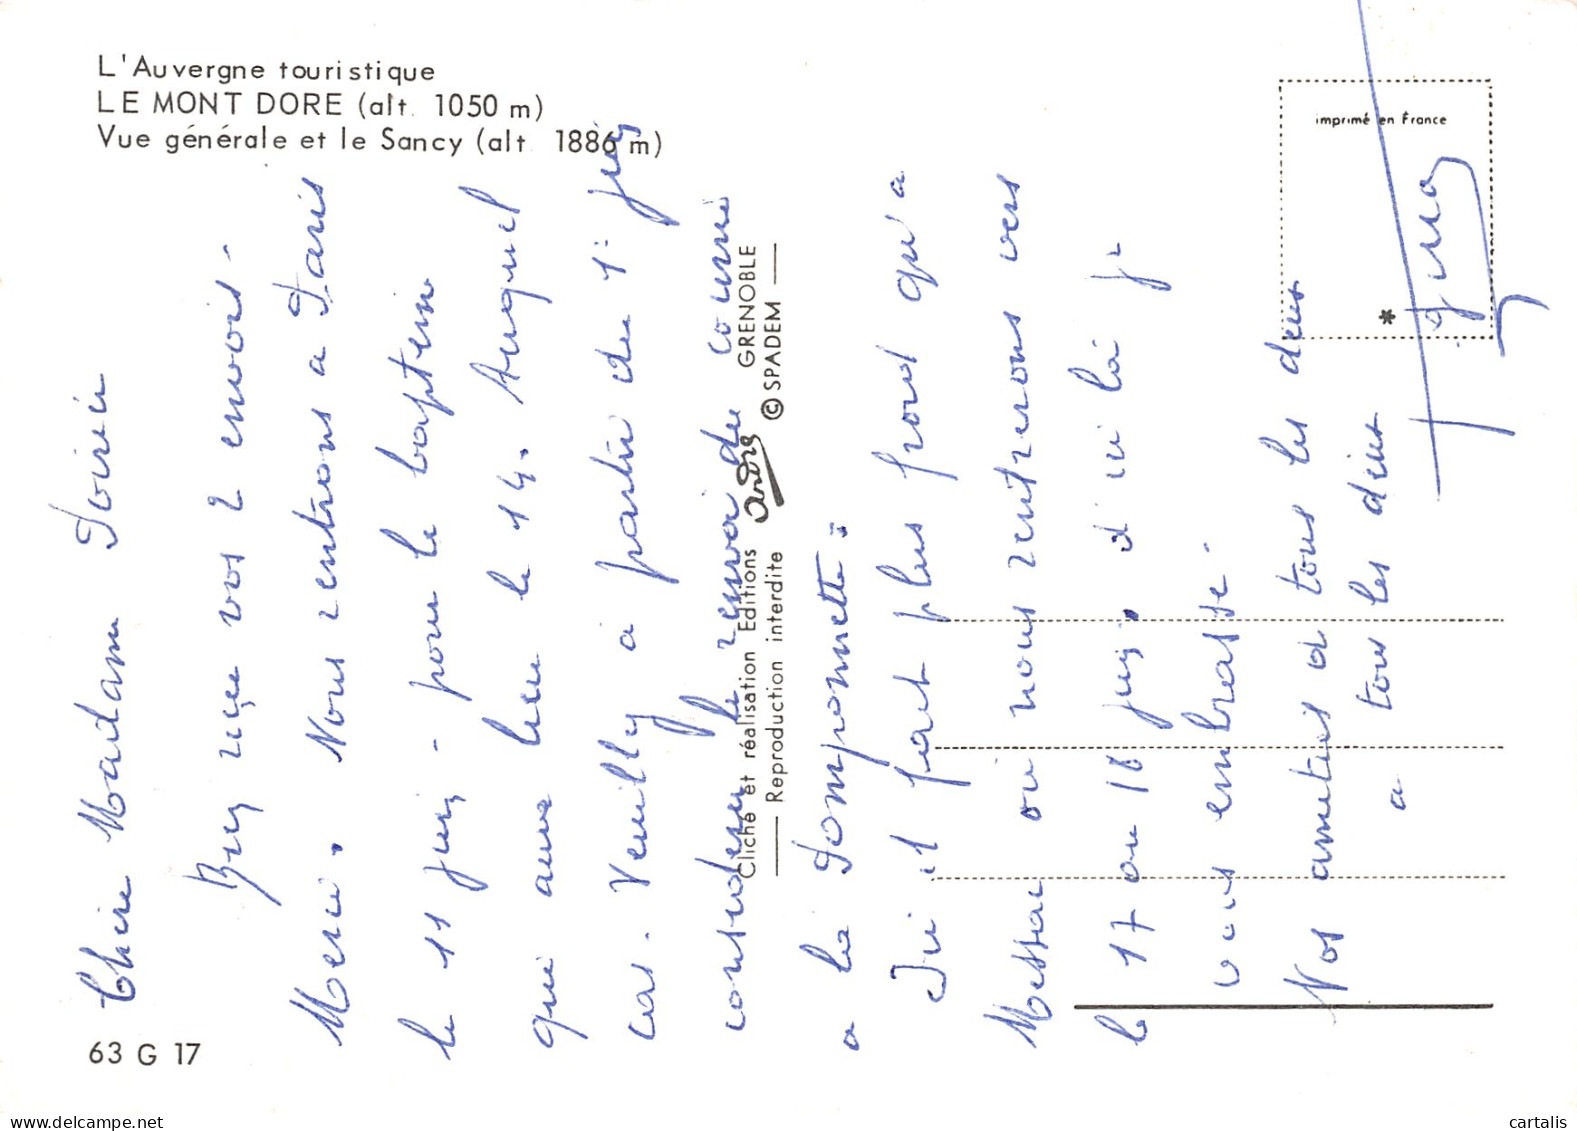 L'Auvergne touristique
LE MONT DORE (alt. 1050 m)
Vue générale et le Sancy (alt. 1886 m)
imprimé en France
*
Chère Madame
Bien reçu vos 2 envois -
Merci. Nous rentrons a Paris
le 11 juin - pour le baptême
qui aura lieu le 14. Auquel
cas. Veuillez à partir du 1er juin
considerer le renvoi du courrier
a la
Ici il fait plus froid qu'a
où nous rentrerons vers
le 17 ou 18 juin. d'ici là je
vous embrasse -
Nos amitiés a tous les deux
a tous les deux
Cliché et réalisation Editions André GRENOBLE
Reproduction interdite © SPADEM
63 G 17
cartalis